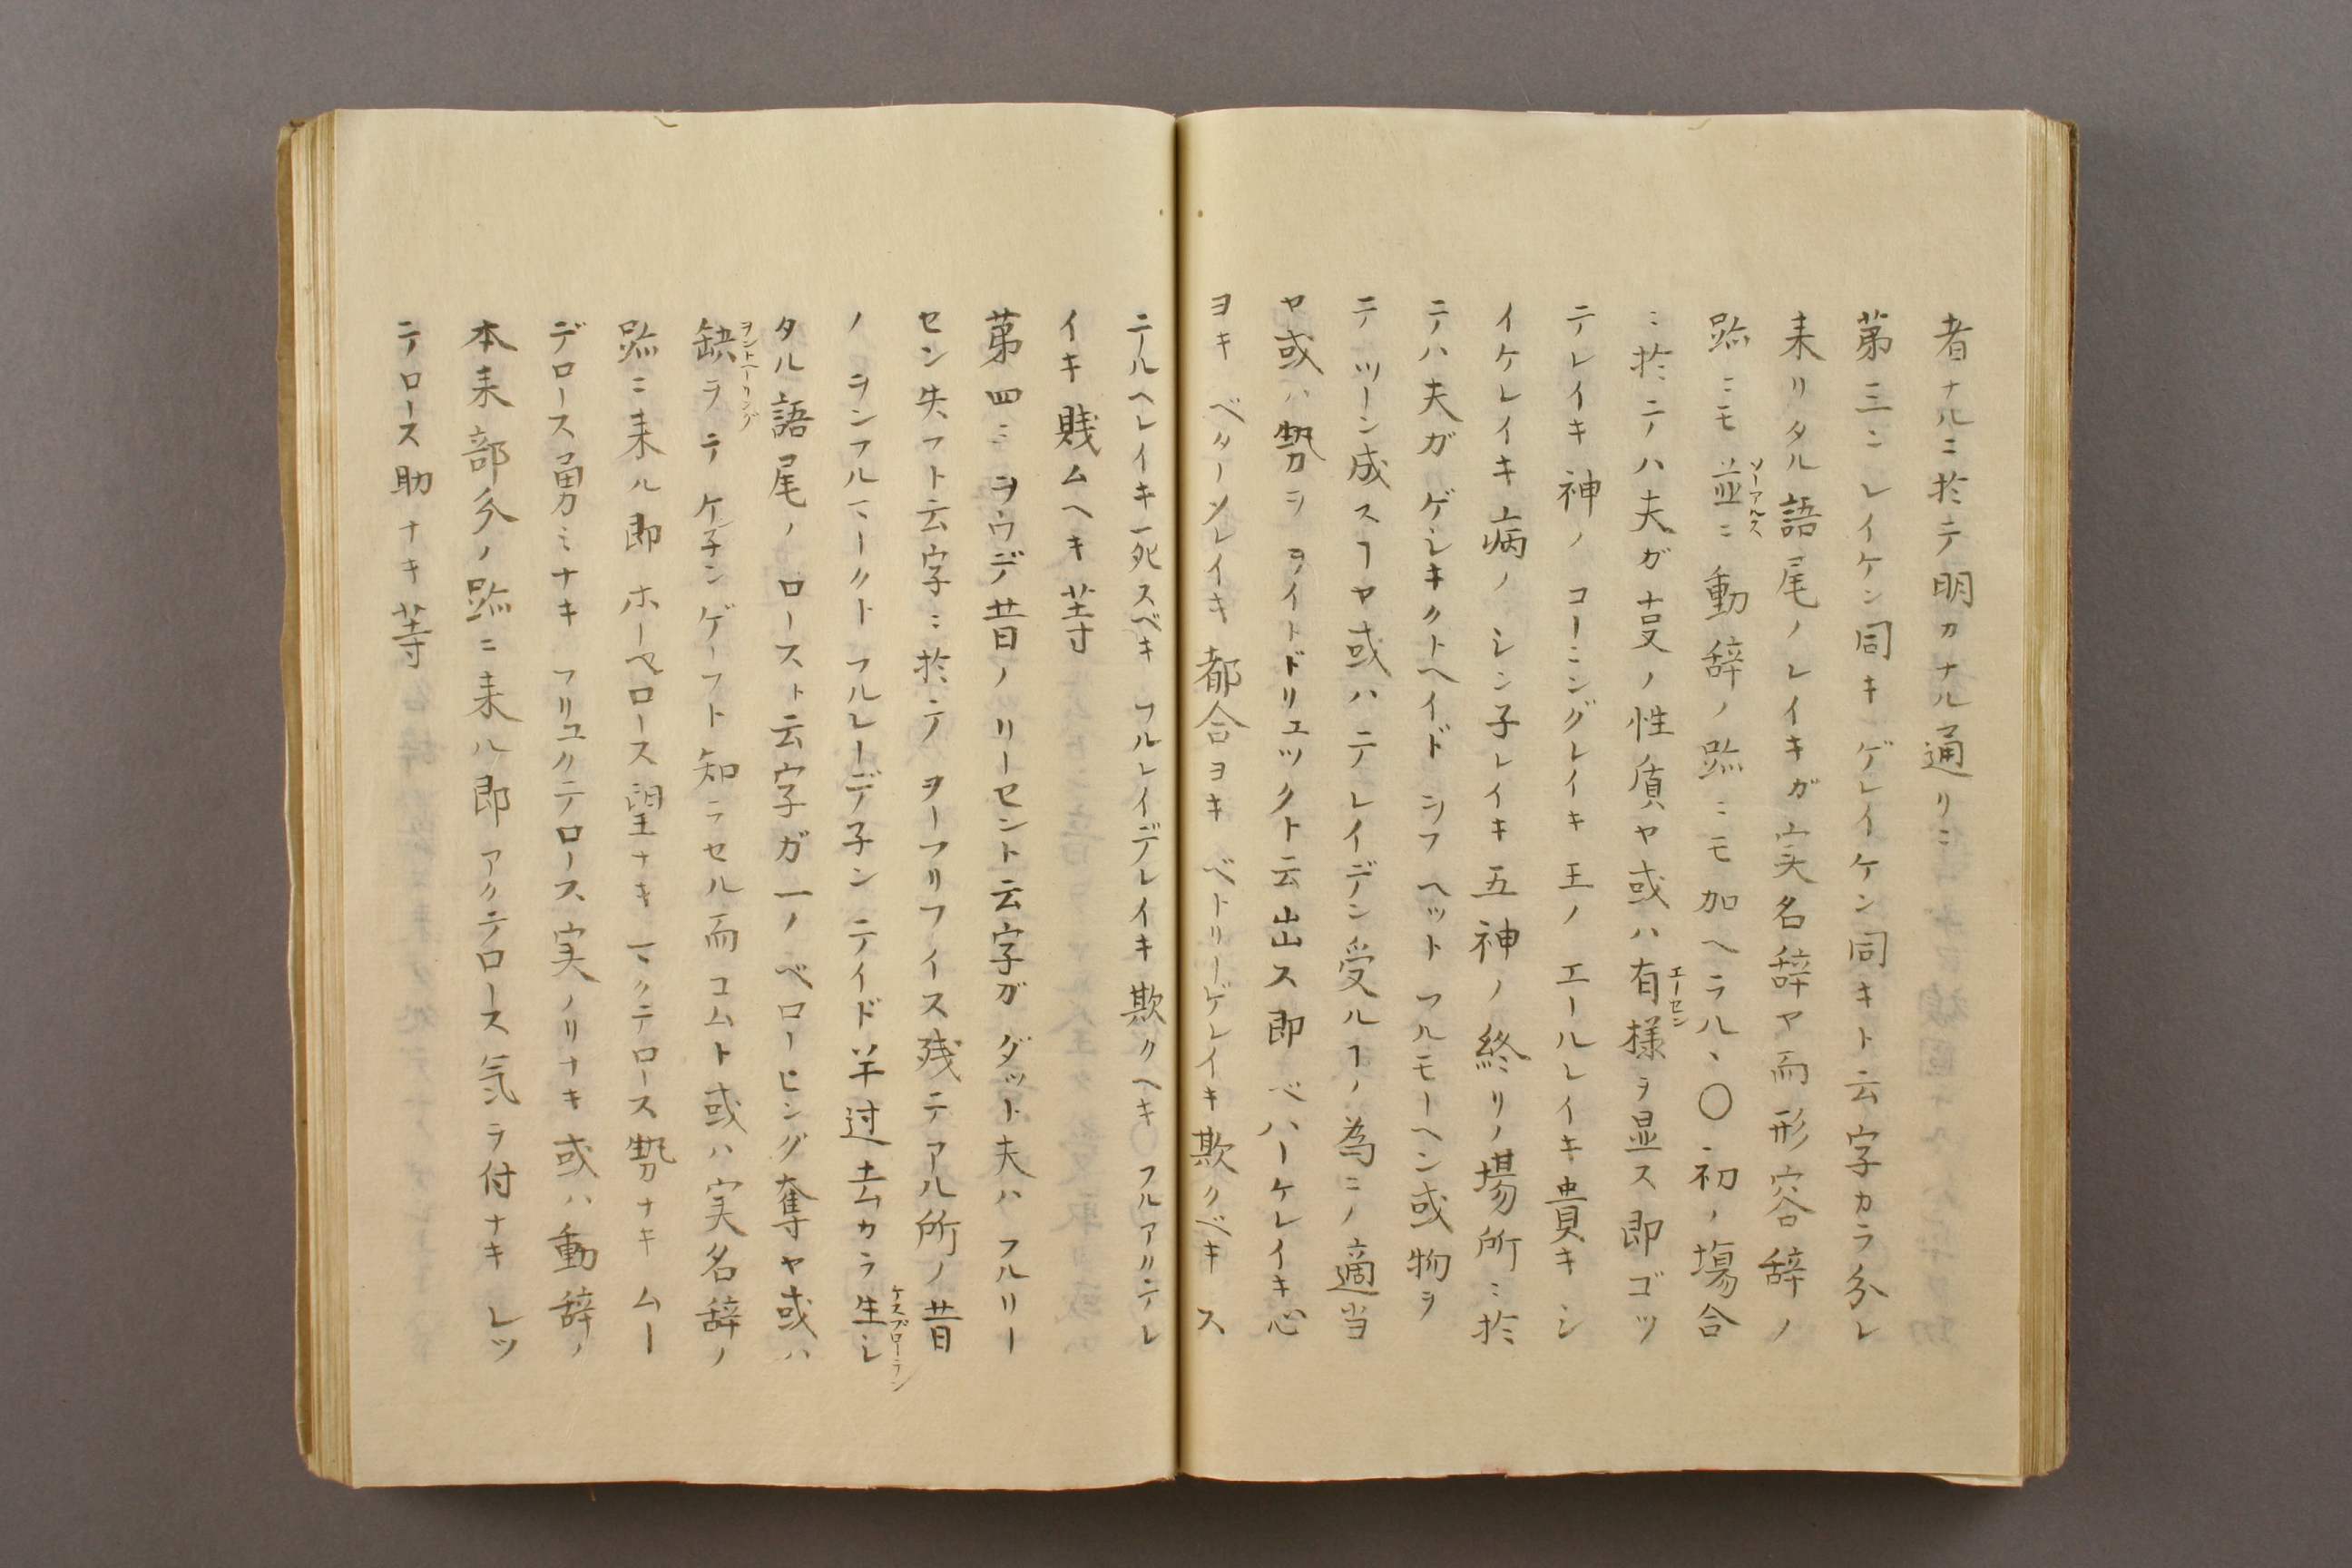 者ナルニ於テ明カナル通リニ
第三ニレイケン同キゲレイケン同キト云字カラ分レ
来リタル語尾ノレイキガ実名辞ヤ而形容辞ノ
跡ニモ並ニ動辞ノ跡ニモ加ヘラル、〇ニ初ノ場合
ソーアルス
ニ於テハ夫ガ㕝ノ性質ヤ或ハ有様ヲ显ス即ゴッ
エーセン
テレイキ神ノコーニングレイキ王ノエールレイキ貴キシ
イケレイキ病ノシン子レイキ五神ノ終リノ場所ニ於
テハ夫ガゲシキクトヘイドシフヘットフルモーヘン或物ヲ
テツーン成スヿヤ或ハテレイデン受ルヿノ為ニノ適当
ヤ或ハ勢ヲヲイトドリュックト云出ス即ベハーケレイキ心
ヨキベターメレイキ都合ヨキベドリーゲレイキ欺クベキス
テルヘレイキ死スベキフルレイデレイキ欺クヘキフルアクテレ
イキ賎ムヘキ等
第四ニヲウデ昔ノリーセント云字ガダット夫ハフルリー
セン失フト云字ニ於テヲーフリフイス残テアル所ノ昔
ノヲンフルマークトフルレーデ子ンテイド半过去カラ生シ
ケスプローテン
タル語尾ノロースト云字ガ一ノベローヒング奪ヤ或ハ
缺ヲテケ子ンゲーフト知ラセル而コムト或ハ実名辞ノ
ヲントベーリング
跡ニ来ル即ホーペロース望ナキマクテロース勢ナキムー
デロース勇ミナキフリュクテロース実ノリナキ或ハ動辞ノ
本来部分ノ跡ニ来ル即アクテロース気ヲ付ナキレッ
テロース助ナキ等